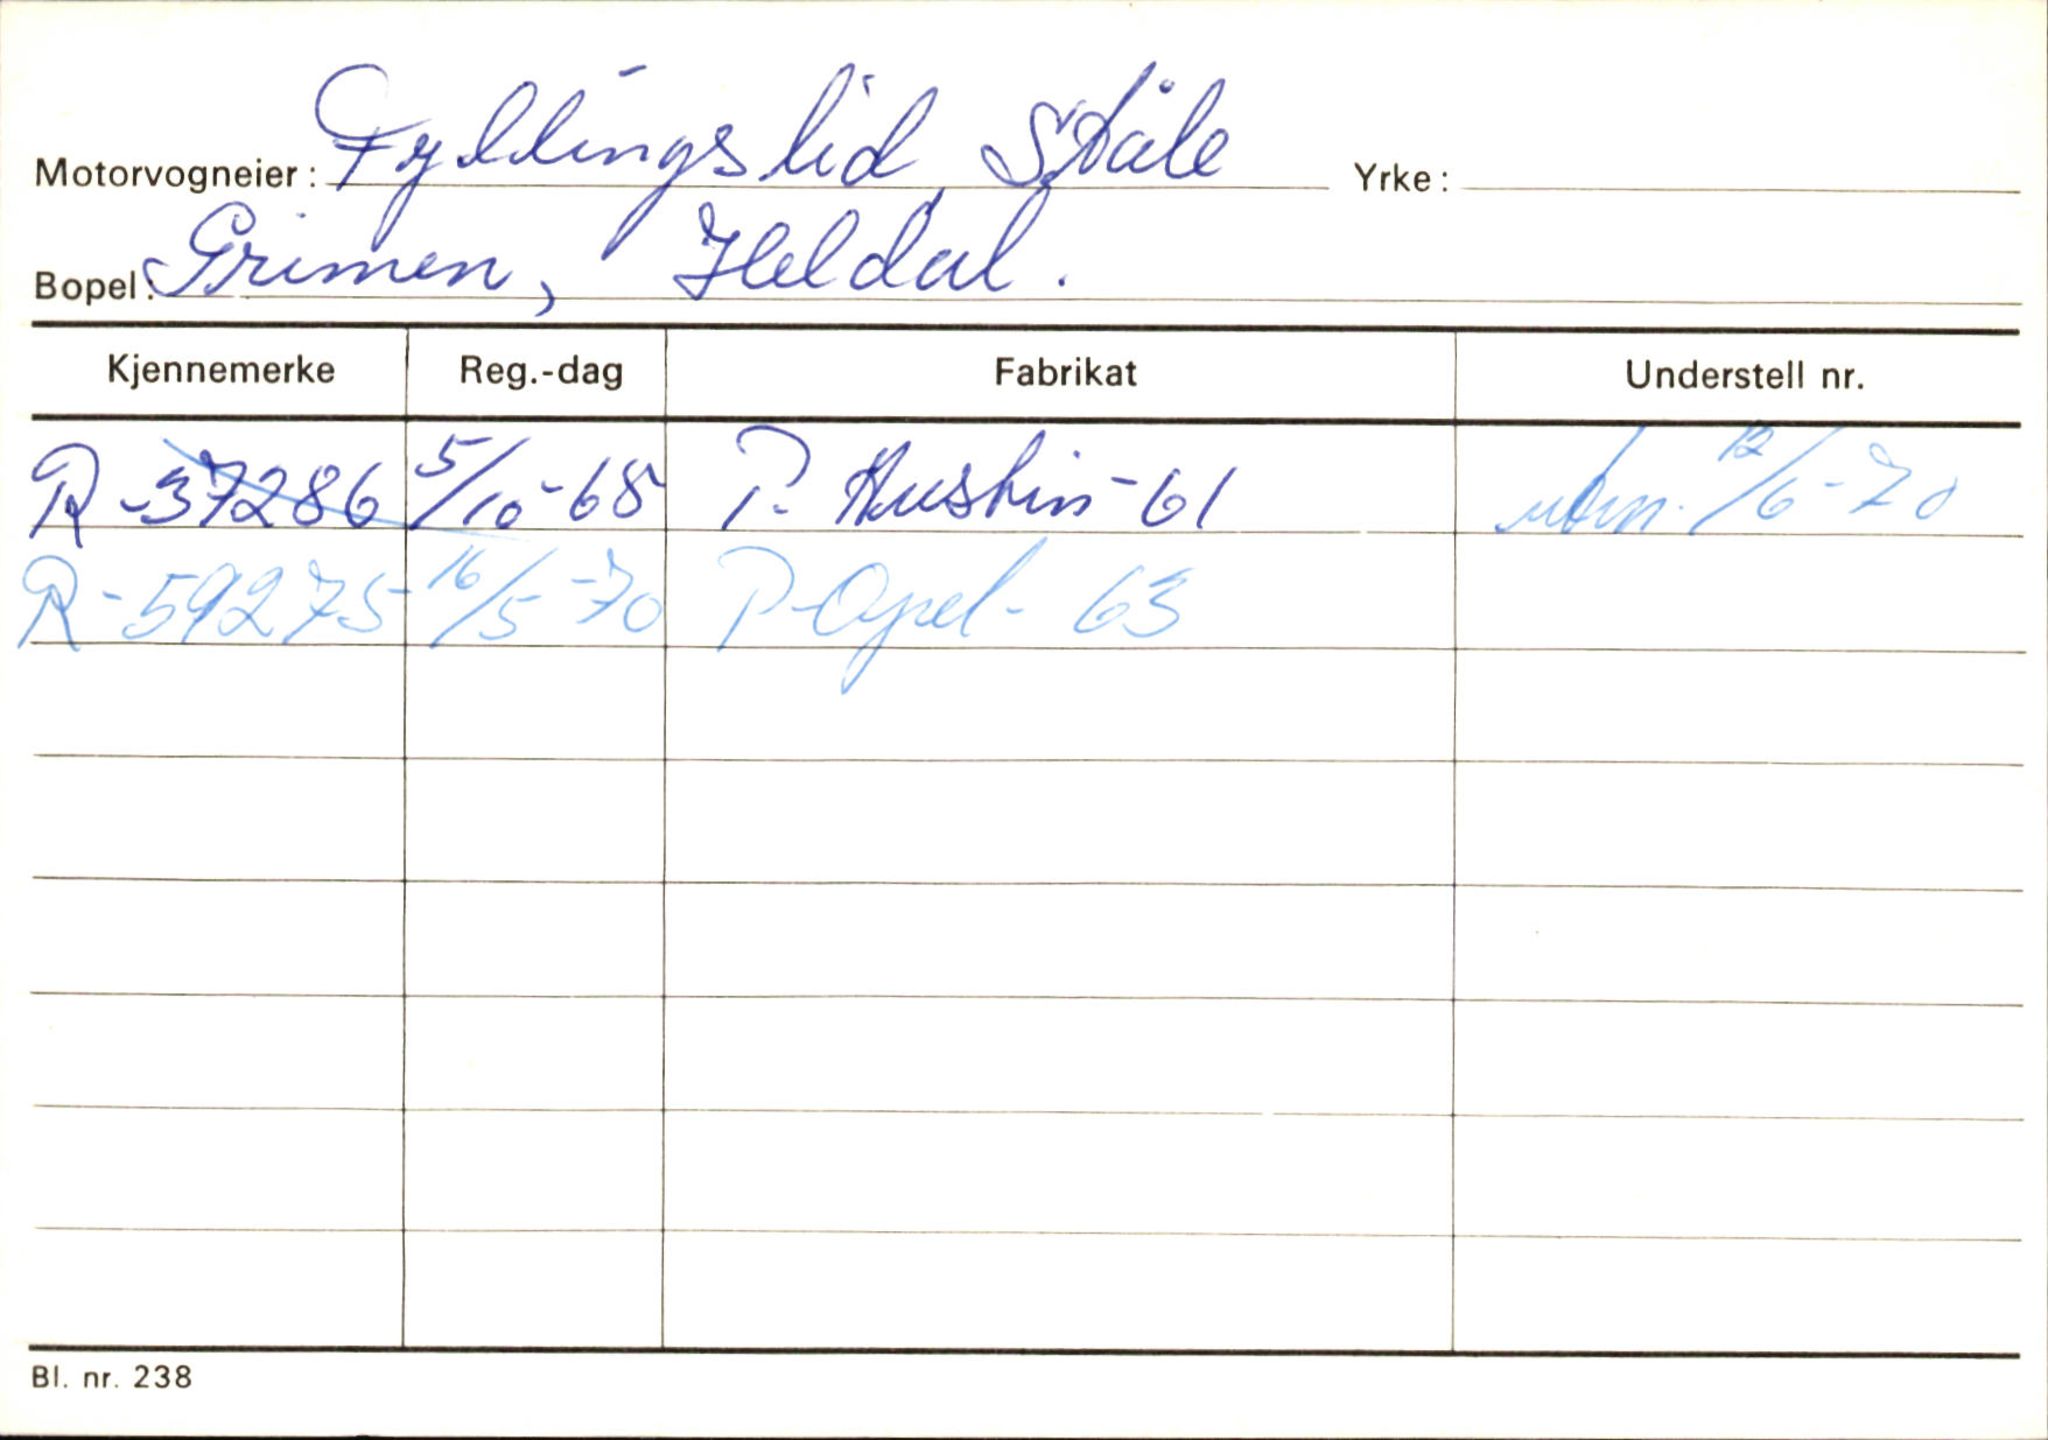 Motorvogneier: Fyllingslid, Ståle Yrke:
Bopel: Grimen, Heldal.
Kjennemerke Reg.-dag Fabrikat Understell nr.
R-37286 5/10-68 P. Austin-61 utm. 12/6-70
R-59275 16/5-70 P-Opel-63
Bl. nr. 238